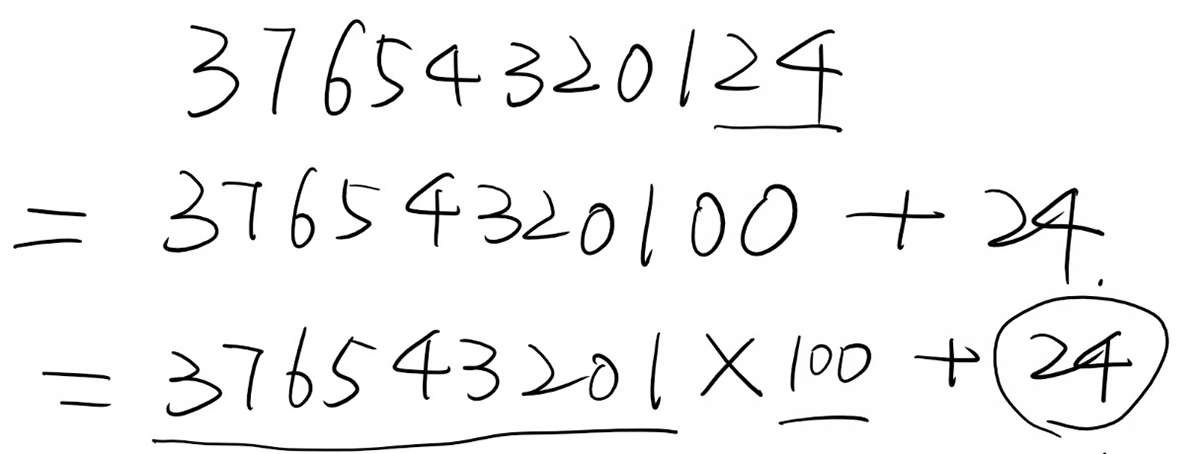 37654320124
= 37654320100 + 24.
= 376543201 × 100 + 24